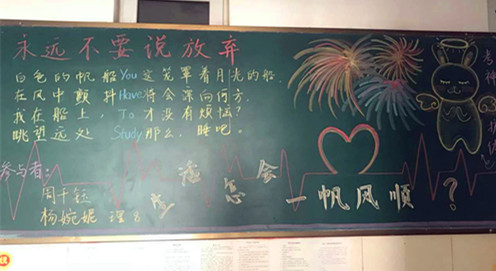 永远不要说放弃
白色的帆船You这笼罩着月光的船.
在风中颤抖Have将会漂向何方.
我在船上，To才没有烦恼？
眺望远处Study那么，睡吧。
参与者：
周千钰
杨婉妮
生活怎会
一帆风顺？
考神